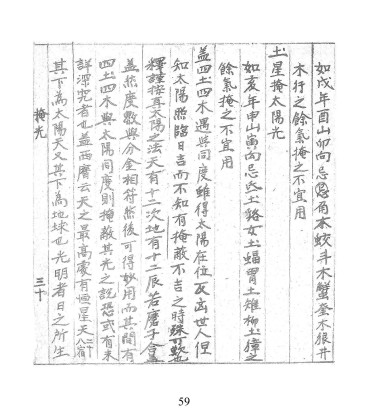 如戊年酉山卯向忌角木蛟斗木蟹奎木狼井
木行之餘氣掩之不宜用
土星掩太陽光
如亥年申山寅向忌氐土貉女土蝠胃土雉柳土獐之
餘氣掩之不宜用
盖四土四木遇與同度雖得太陽在位反凶世人但
知太陽照臨日吉而不知有掩蔽不吉之時殊可歎也
釋證按太陽之法天有十二次地有十二辰若磨子合
盖然度數與分金相符然後可得妙用而其間有
四土四木與太陽同度則掩蔽其光之說恐或有未
詳深究者也盖西曆云天之最高處有恒星天二十八宿
其下為太陽天又其下為地球也光明者日之所生
掩光 三十
59